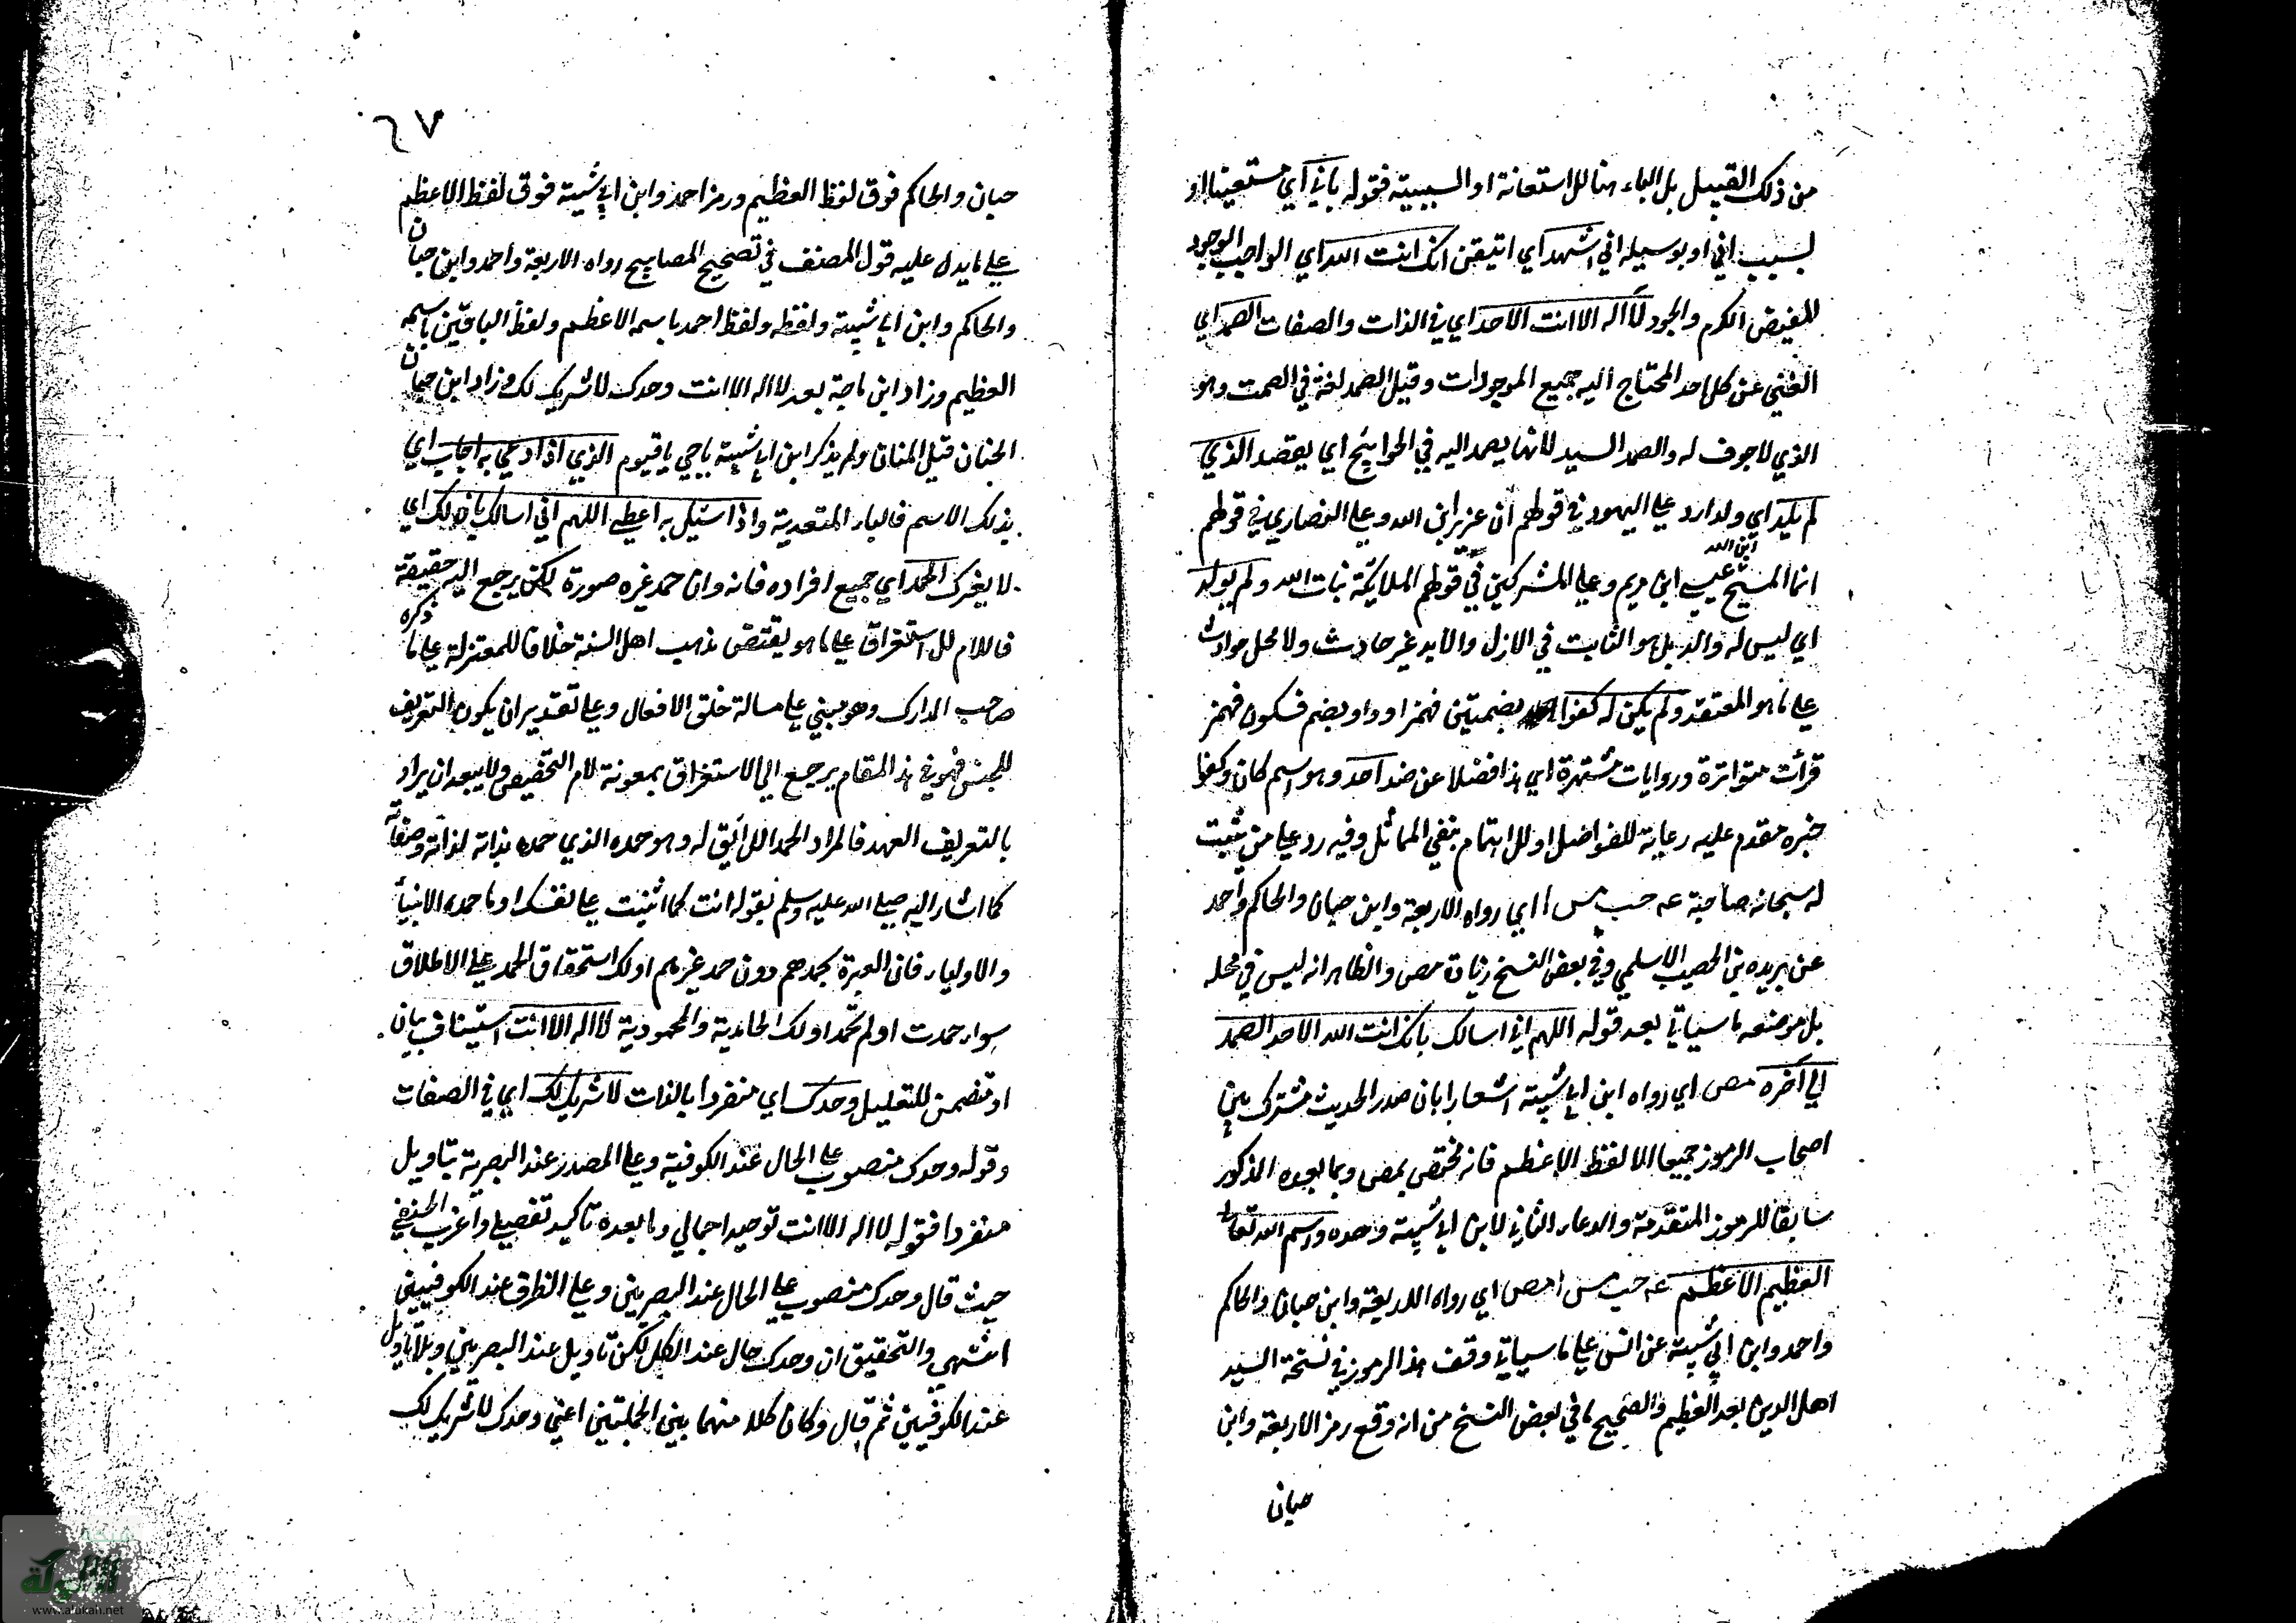 من ذلك القبيل بل الباء هنا للاستعانة او السببية فقوله باني اي مستعينا او
بسبب اني او بوسيلة اني اشهد اي اتيقن انك انت الله اي الواجب الوجود
المفيض الكرم والجود لا اله الا انت الاحد اي في الذات والصفات الصمد اي
الغني عن كل احد المحتاج اليه جميع الموجودات وقيل الصمد لغة في الصمت وهو
الذي لا جوف له والصمد السيد لانما يصمد اليه في الحوائج اي يقصد الذي
لم يلد اي ولدا رد علي اليهود في قولهم ان عزير ابن الله وعلي النصاري في قولهم
ابن الله
انما المسيح عيسي ابن مريم وعلي المشركين في قولهم الملائكة بنات الله ولم يولد
اي ليس له والد بل هو الثابت في الازل والابد غير حادث ولا محل حوادث
علي ما هو المعتقد ولم يكن له كفوا بضمتين فهمز او واو وبضم فسكون فهمز
قرأت متواترة وروايات مشتهرة اي هذا فضلا عن ضد احد وهو اسم كان وكفوا
خبره مقدم عليه رعاية للفواصل او للاهتمام بنفي المماثل وفيه رد علي من يثبت
له سبحانه صاحبة عه حب مس ا اي رواه الاربعة وابن حبان والحاكم واحمد
عن بريده بن الحصيب الاسلمي وفي بعض النسخ زيادة مص والظاهر انه ليس في محله
بل موضعه ما سياتي بعد قوله اللهم اني اسالك بانك انت الله الاحد الصمد
الي آخره مص اي رواه ابن ابي شيبة اشعارا بان صدر الحديث مشترك بين
اصحاب الرموز جميعا الا لفظ الاعظم فانه مختص بمص وبما بعده المذكور
سابقا للرموز المتقدمة والدعاء الثاني لابن ابي شيبة وحده واسم الله تعالي
العظيم الاعظم عه حب مس ا مص اي رواه الاربعة وابن حبان والحاكم
واحمد وابن ابي شيبة عن انس علي ما سياتي وقف هذا الرموز في نسخة السيد
اصل الدين بعد العظيم والصحيح ما في بعض النسخ من انه وقع رمز الاربعة وابن
حبان
٦٧
حبان والحاكم فوق لفظ العظيم ورمز احمد وابن ابي شيبة فوق لفظ الاعظم
علي ما يدل عليه قول المصنف في تصحيح المصابيح رواه الاربعة واحمد وابن حبان
والحاكم وابن ابي شيبة ولفظه ولفظ احمد باسمه الاعظم ولفظ الباقين باسمه
العظيم وزاد ابن ماجة بعد لا اله الا انت وحدك لا شريك لك وزاد ابن حبان
الحنان قبل المنان ولم يذكر ابن ابي شيبة يا حي يا قيوم الذي اذا دعي به اجاب اي
بذلك الاسم فالباء المتعدية واذا سئيل به اعطي اللهم اني اسالك بان لك اي
لا لغيرك الحمد اي جميع افراده فانه وان حمد غيره صورة لكن يرجع اليه حقيقة
فاللام للاستغراق علي ما هو يقتضى مذهب اهل السنة خلافا للمعتزلة علي ما ذكره
صاحب المدارك وهو مبني علي مسالة خلق الافعال وعلي تقدير ان يكون التعريف
للجنس فهو في هذا المقام يرجع الي الاستغراق بمعونة لام التخصيص ولا يبعد ان يراد
بالتعريف العهد فالمراد الحمد اللائق له وهو حمده الذي حمده بذاته لذاته وصفاته
كما اشار اليه صلي الله عليه وسلم بقوله انت كما اثنيت علي نفسك او ما حمده الانبيآ
والاولياء فان العبرة بحمدهم دون حمد غيرهم او لك استحقاق الحمد علي الاطلاق
سواء حمدت او لم تحمد او لك الحامدية والمحمودية لا اله الا انت استيناف بيان
او تضمن للتعليل وحدك اي منفردا بالذات لا شريك لك اي في الصفات
وقوله وحدك منصوب علي الحال عند الكوفية وعلي المصدر عند البصرية بتاويل
منفردا فقوله لا اله الا انت توحيد اجمالي وما بعده تاكيد تفصيلي واغرب الحنفي
حيث قال وحدك منصوب علي الحال عند البصريين وعلي الظرف عند الكوفيين
انتهي والتحقيق ان وحدك حال عند الكل لكن تاويل عند البصريين وبلا تاويل
عند الكوفيين ثم قال وكان كلا منهما بين الجملتين اعني وحدك لا شريك لك
شبكة
الألوكة
www.alukah.net